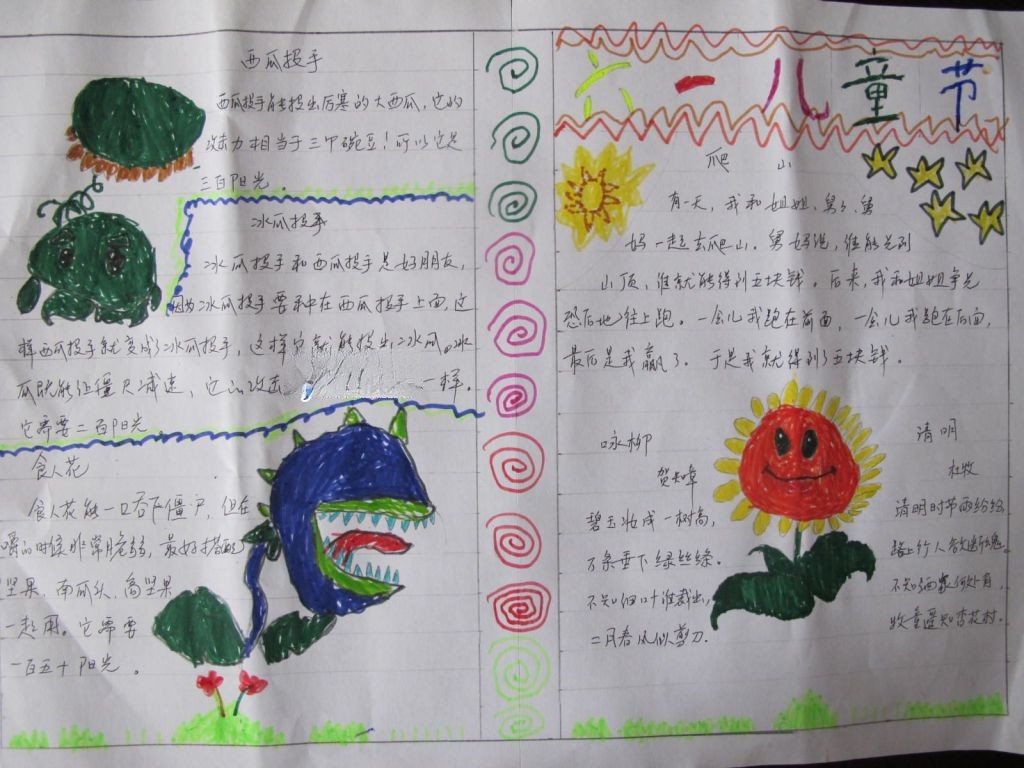 西瓜投手
西瓜投手能投出厉害的大西瓜,它的
攻击力相当于三甲碗豆!可以它是
三百阳光。
冰瓜投手
冰瓜投手和西瓜投手是好朋友,
因为冰瓜投手要种在西瓜投手上面,这
样西瓜投手就变成了冰瓜投手,这样它就能投出冰瓜。冰
瓜既能让僵尸减速,它的攻击 一样。
它需要二百阳光
食人花
食人花能一口吞下僵尸,但在
嚼的时候非常脆弱,最好搭配
坚果、南瓜头、高坚果
一起用。它需要
一百五十阳光。
六一儿童节
爬 山
有一天,我和姐姐、舅舅、舅
妈一起去爬山。舅妈说,谁能先到
山顶,谁就能得到五块钱。后来,我和姐姐争先
恐后地往上跑。一会儿我跑在前面,一会儿我跑在后面,
最后是我赢了。于是我就得到了五块钱。
咏柳
贺知章
碧玉妆成一树高,
万条垂下绿丝绦。
不知细叶谁裁出,
二月春风似剪刀.
清明
杜牧
清明时节雨纷纷
路上行人欲断魂。
不知酒家何处有,
牧童遥知杏花村.